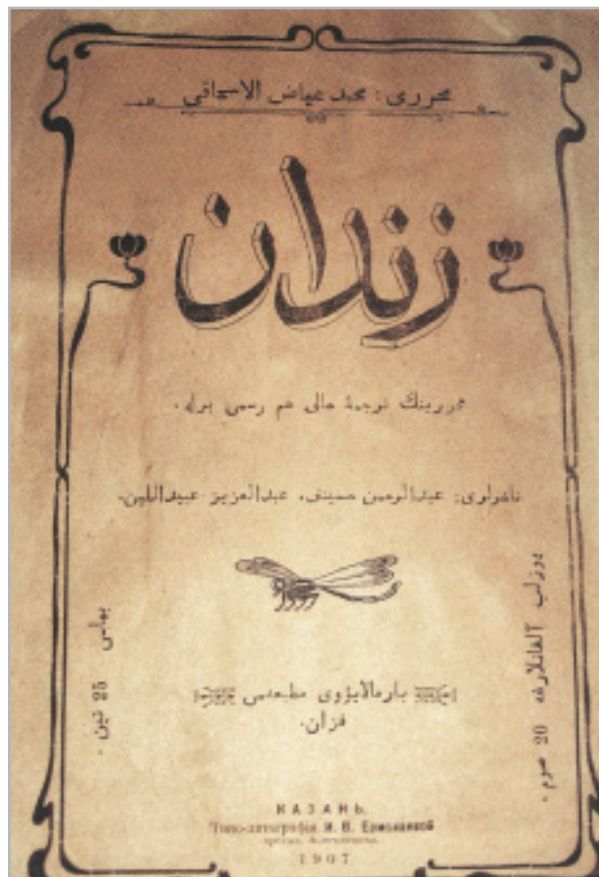 محرری : محمد عیاض الاسحاقی
زندان
محررینڭ ترجمهٔ حالی هم رسمی برله .
ناشرلری: عبدالرحمن حسینف، عبدالعزیز عبیداللین.
بهاسی 25 تین .
یوزلب آلغانلارغه 20 صوم .
مطبعه‌سی
قزان.
КАЗАНЬ.
Типо-литографія И. В. Ермолаевой
1907